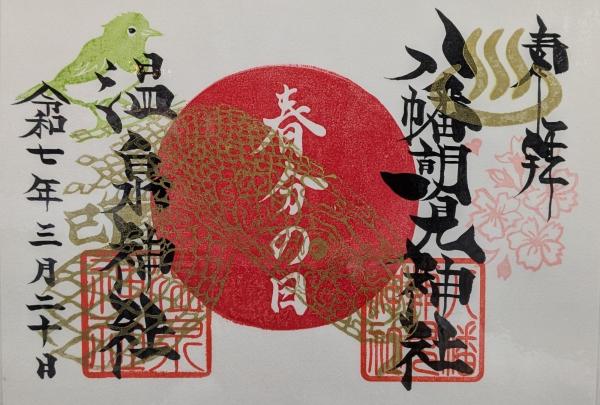 奉拝
八幡朝見神社
春分の日
温泉神社
令和七年三月二十日
巳